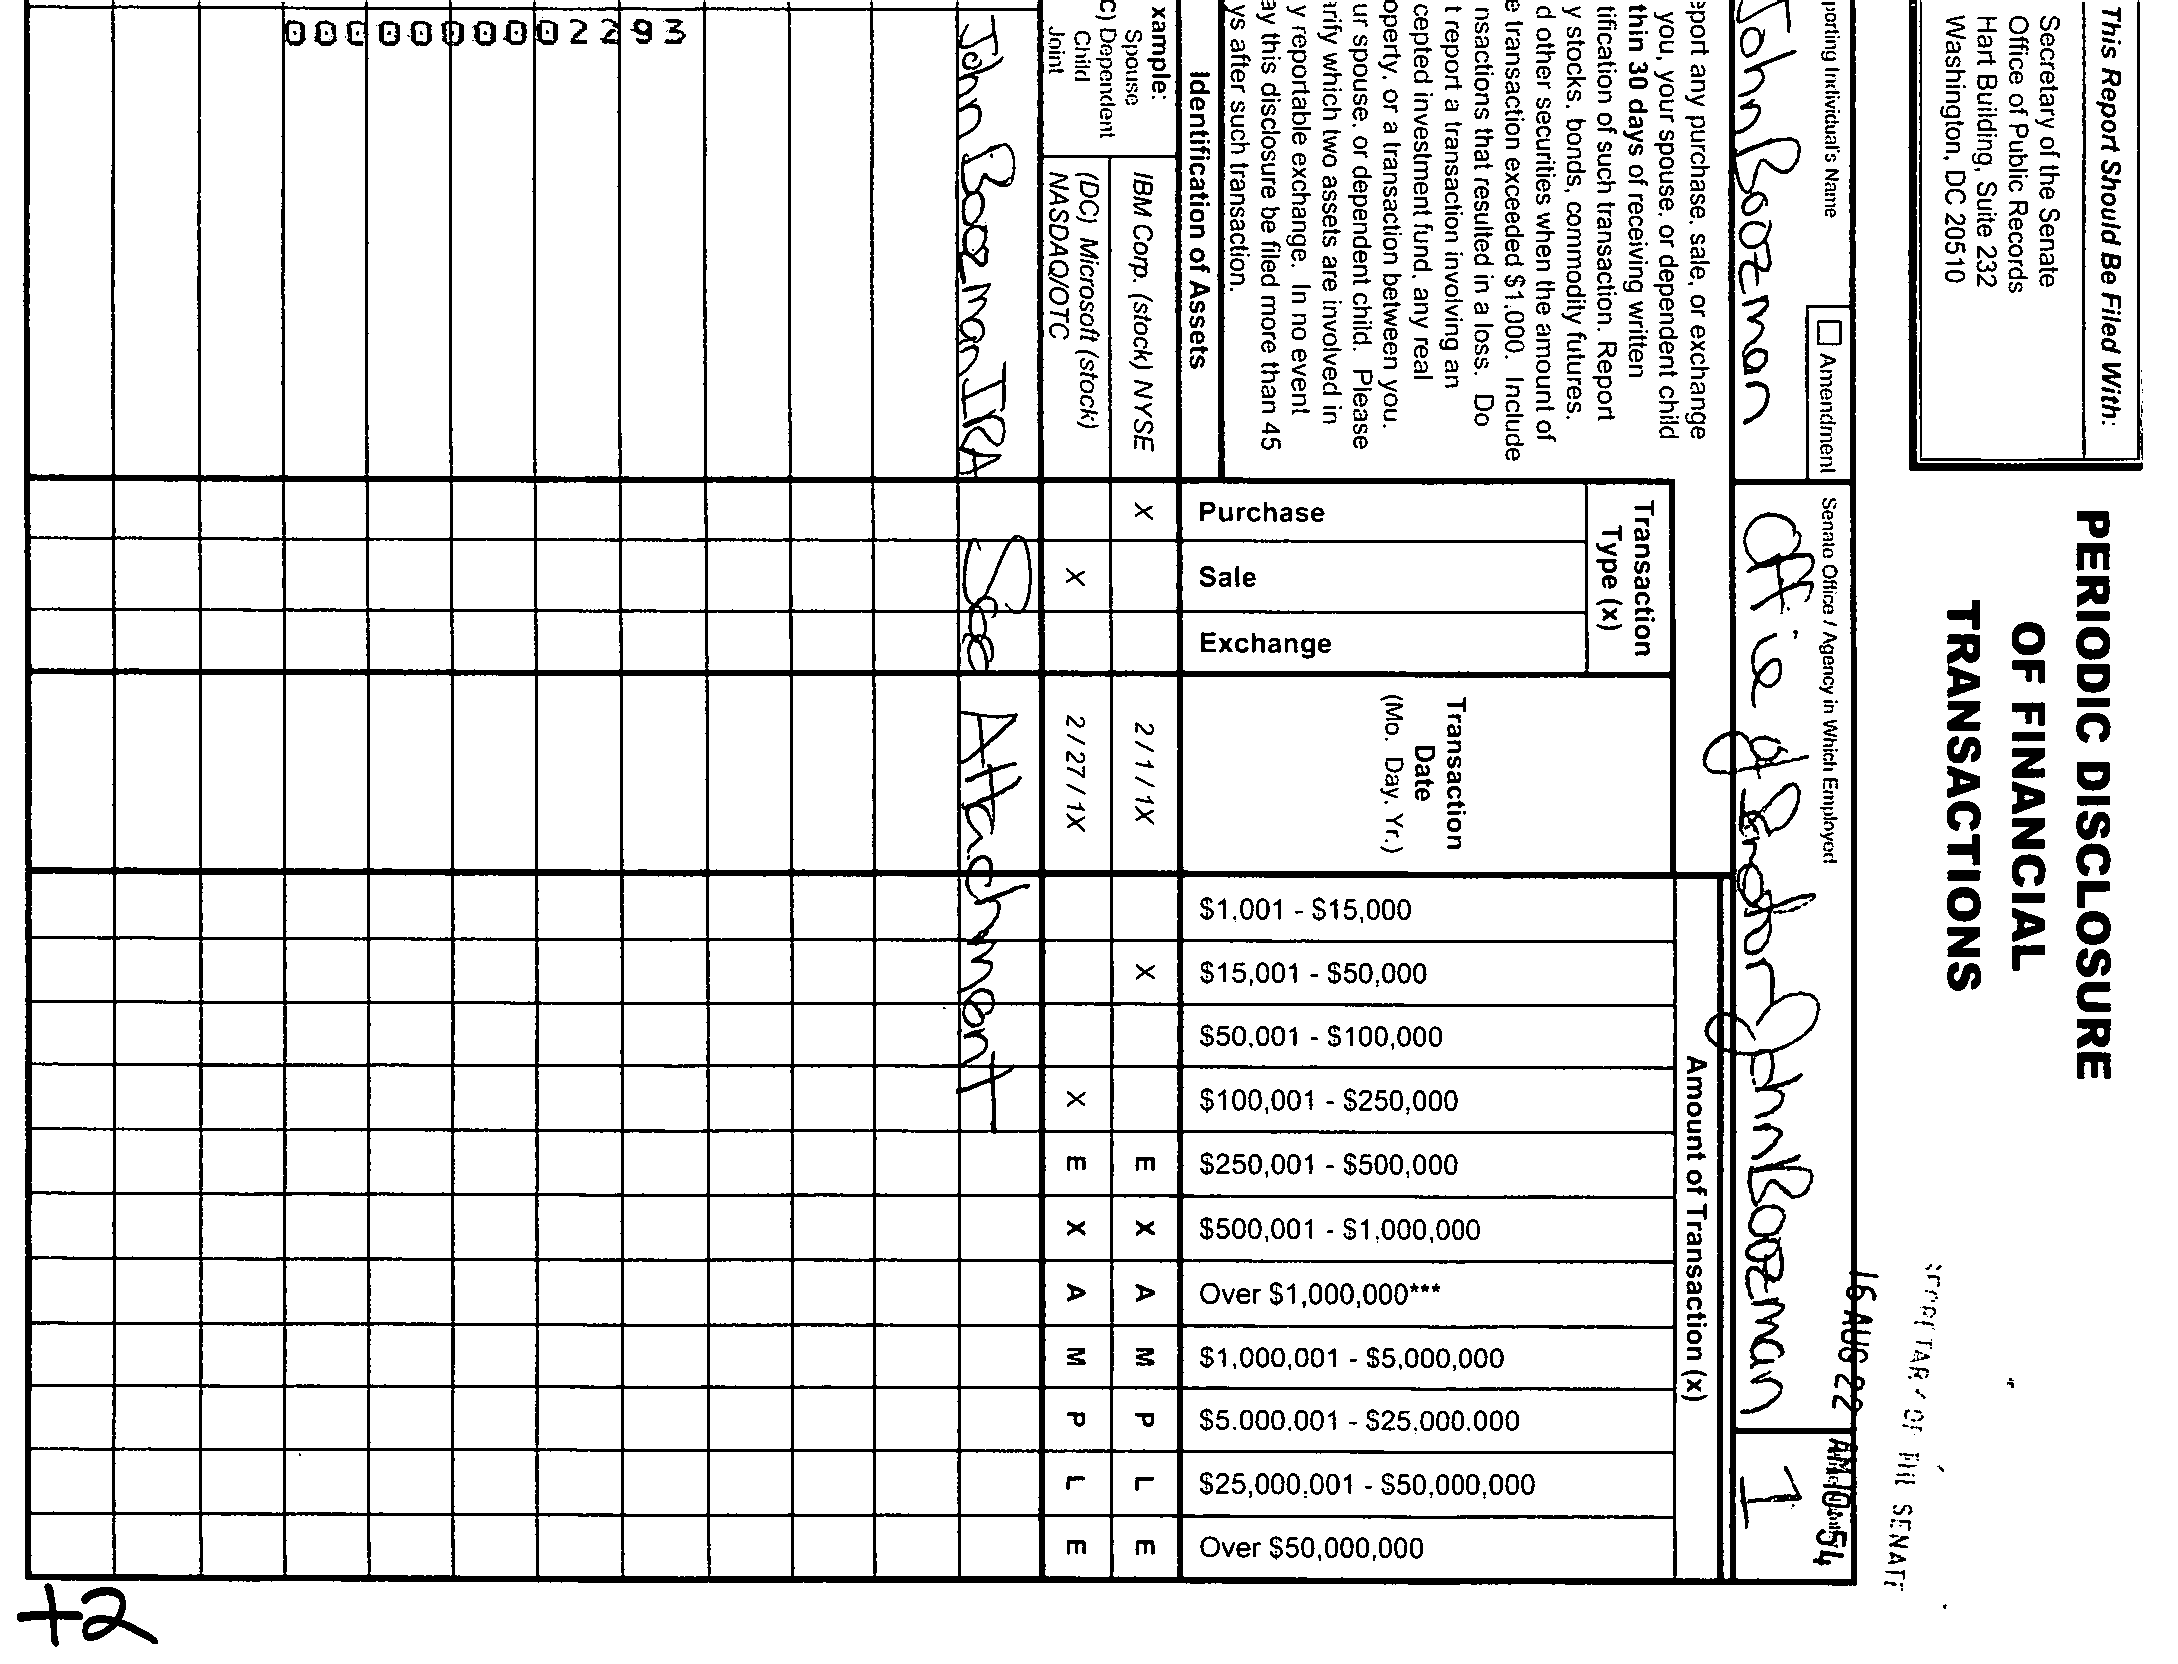 This Report Should Be Filed With:
Secretary of the Senate
Office of Public Records
Hart Building, Suite 232
Washington, DC 20510
PERIODIC DISCLOSURE
OF FINANCIAL
TRANSACTIONS
SECRETARY OF THE SENATE
16 AUG 22 AM 10:54
porting Individual's Name
Amendment
Senate Office / Agency in Which Employed
John Boozman
Office of Senator John Boozman
1
eport any purchase, sale, or exchange
you, your spouse, or dependent child
thin 30 days of receiving written
tification of such transaction. Report
y stocks, bonds, commodity futures,
d other securities when the amount of
e transaction exceeded $1,000. Include
nsactions that resulted in a loss. Do
t report a transaction involving an
cepted investment fund, any real
operty, or a transaction between you,
ur spouse, or dependent child. Please
arify which two assets are involved in
y reportable exchange. In no event
ay this disclosure be filed more than 45
ys after such transaction.
Identification of Assets
Transaction
Type (x)
Purchase
Sale
Exchange
Transaction
Date
(Mo. Day. Yr.)
Amount of Transaction (x)
$1,001 - $15,000
$15,001 - $50,000
$50,001 - $100,000
$100,001 - $250,000
$250,001 - $500,000
$500,001 - $1,000,000
Over $1,000,000***
$1,000,001 - $5,000,000
$5,000,001 - $25,000,000
$25,000,001 - $50,000,000
Over $50,000,000
xample:
Spouse
C) Dependent
Child
Joint
IBM Corp. (stock) NYSE X 2 / 1 / 1X X E X A M P L E
(DC) Microsoft (stock)
NASDAQ/OTC X 2 / 27 / 1X X E X A M P L E
John Boozman IRA See Attachment
0000000002293
+2